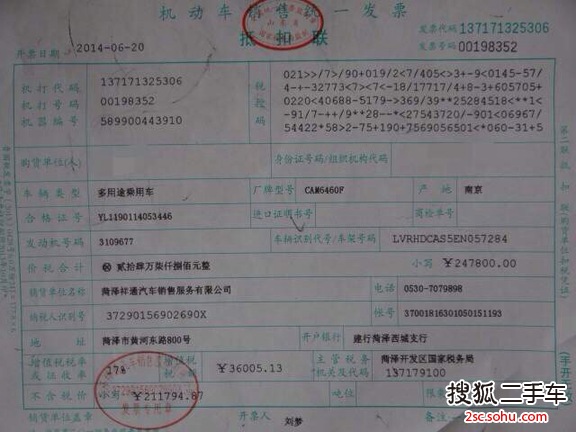 机动车销售统一发票
抵扣联
发票代码 137171325306
发票号码 00198352
开票日期 2014-06-20
机打代码 137171325306
机打号码 00198352
机器编号 589900443910
税控码
021>>/7>/90+019/2<7/405<>3+-9<0145-57/
4-+-32773<7><7<-18/17717/4+8-3+605705+
0220<40688-5179->369/39**25284518<**1<
-91/7-++/9**28--**27543720/-901<06967/
54422*58>2-75+190+7569056501<*060-31+5
购货单位(人)
身份证号码/组织机构代码
车辆类型 多用途乘用车 厂牌型号 CAM6460F 产地 南京
合格证号 YL1190114053446 进口证明书号 商检单号
发动机号码 3109677 车辆识别代号/车架号码 LVRHDCAS5EN057284
价税合计 ⊗ 贰拾肆万柒仟捌佰元整 小写 ¥247800.00
销货单位名称 菏泽祥通汽车销售服务有限公司 电话 0530-7079898
纳税人识别号 37290156902690X 账号 37001816301050151193
地址 菏泽市黄河东路800号 开户银行 建行菏泽西城支行
增值税税率或征收率 17% 增值税税额 ¥36005.13 主管税务机关及代码 菏泽开发区国家税务局
137179100
不含税价 小写 ¥211794.87 吨位
37290156902690X
发票专用章
开票人 刘梦 备注
第二联
搜狐二手车
2sc.sohu.com